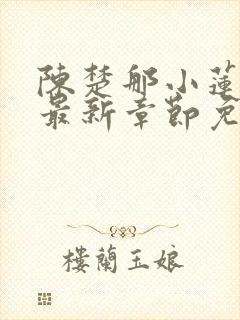 陳楚那小蓮
最新章節免
樓蘭玉娘